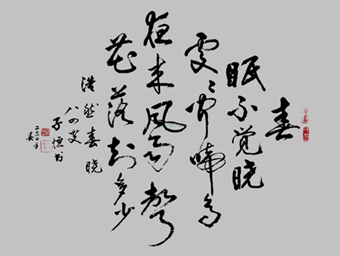 春
眠不觉晓
处々闻啼鸟
夜来风雨声
花落知多少
浩然春晓
八四叟
子恒书